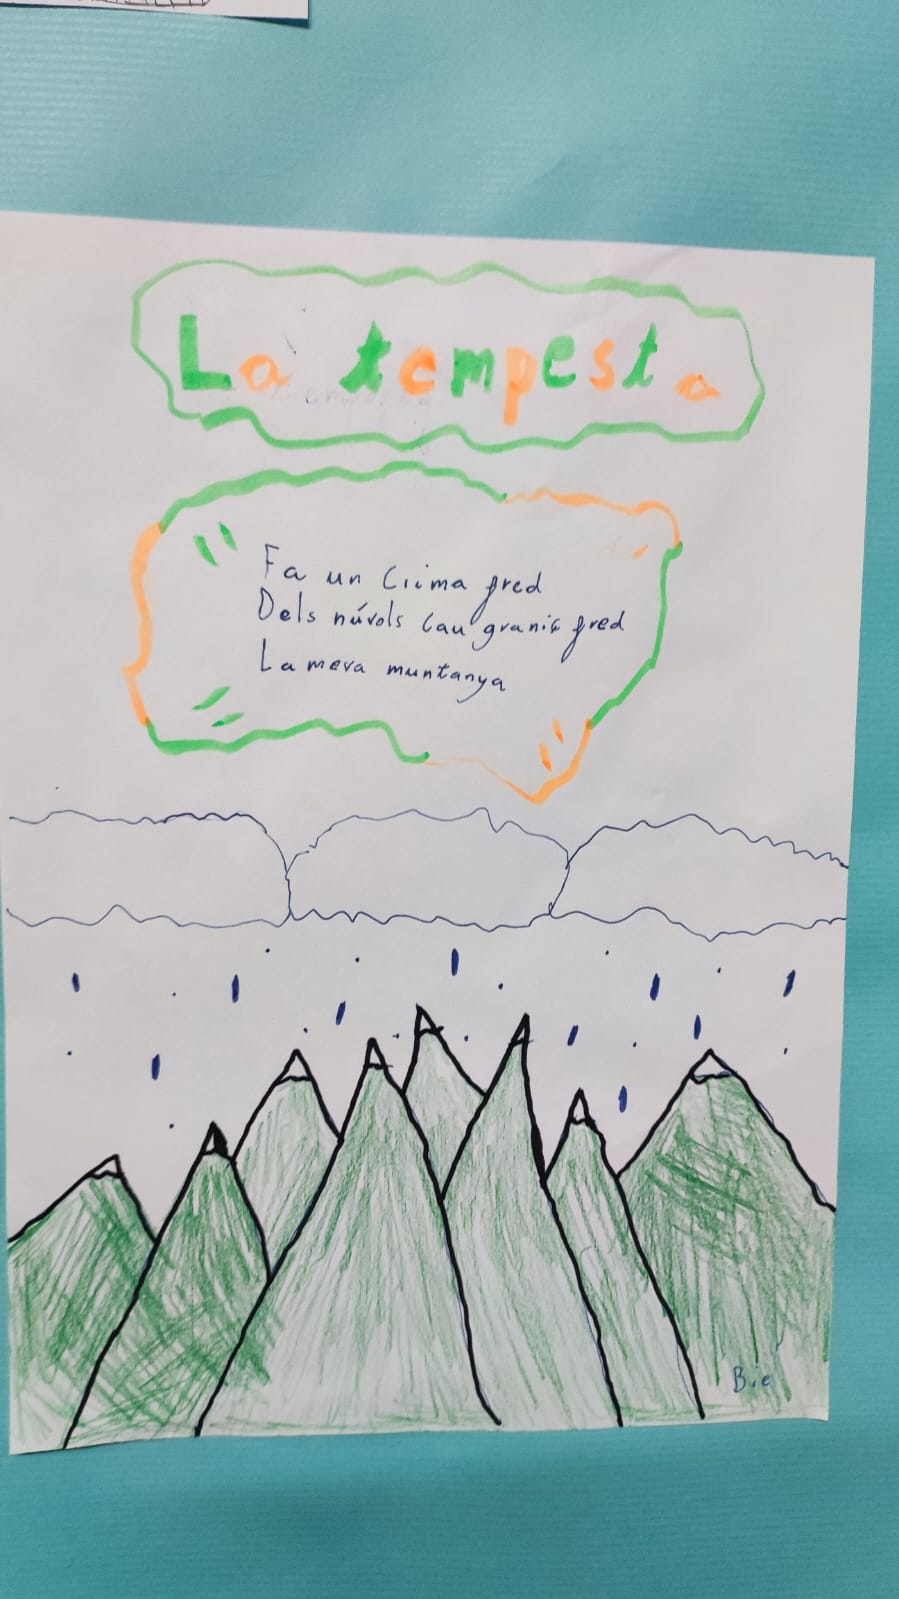 La tempesta
Fa un Clima fred
Dels núvols cau graniç fred
La meva muntanya
Bie